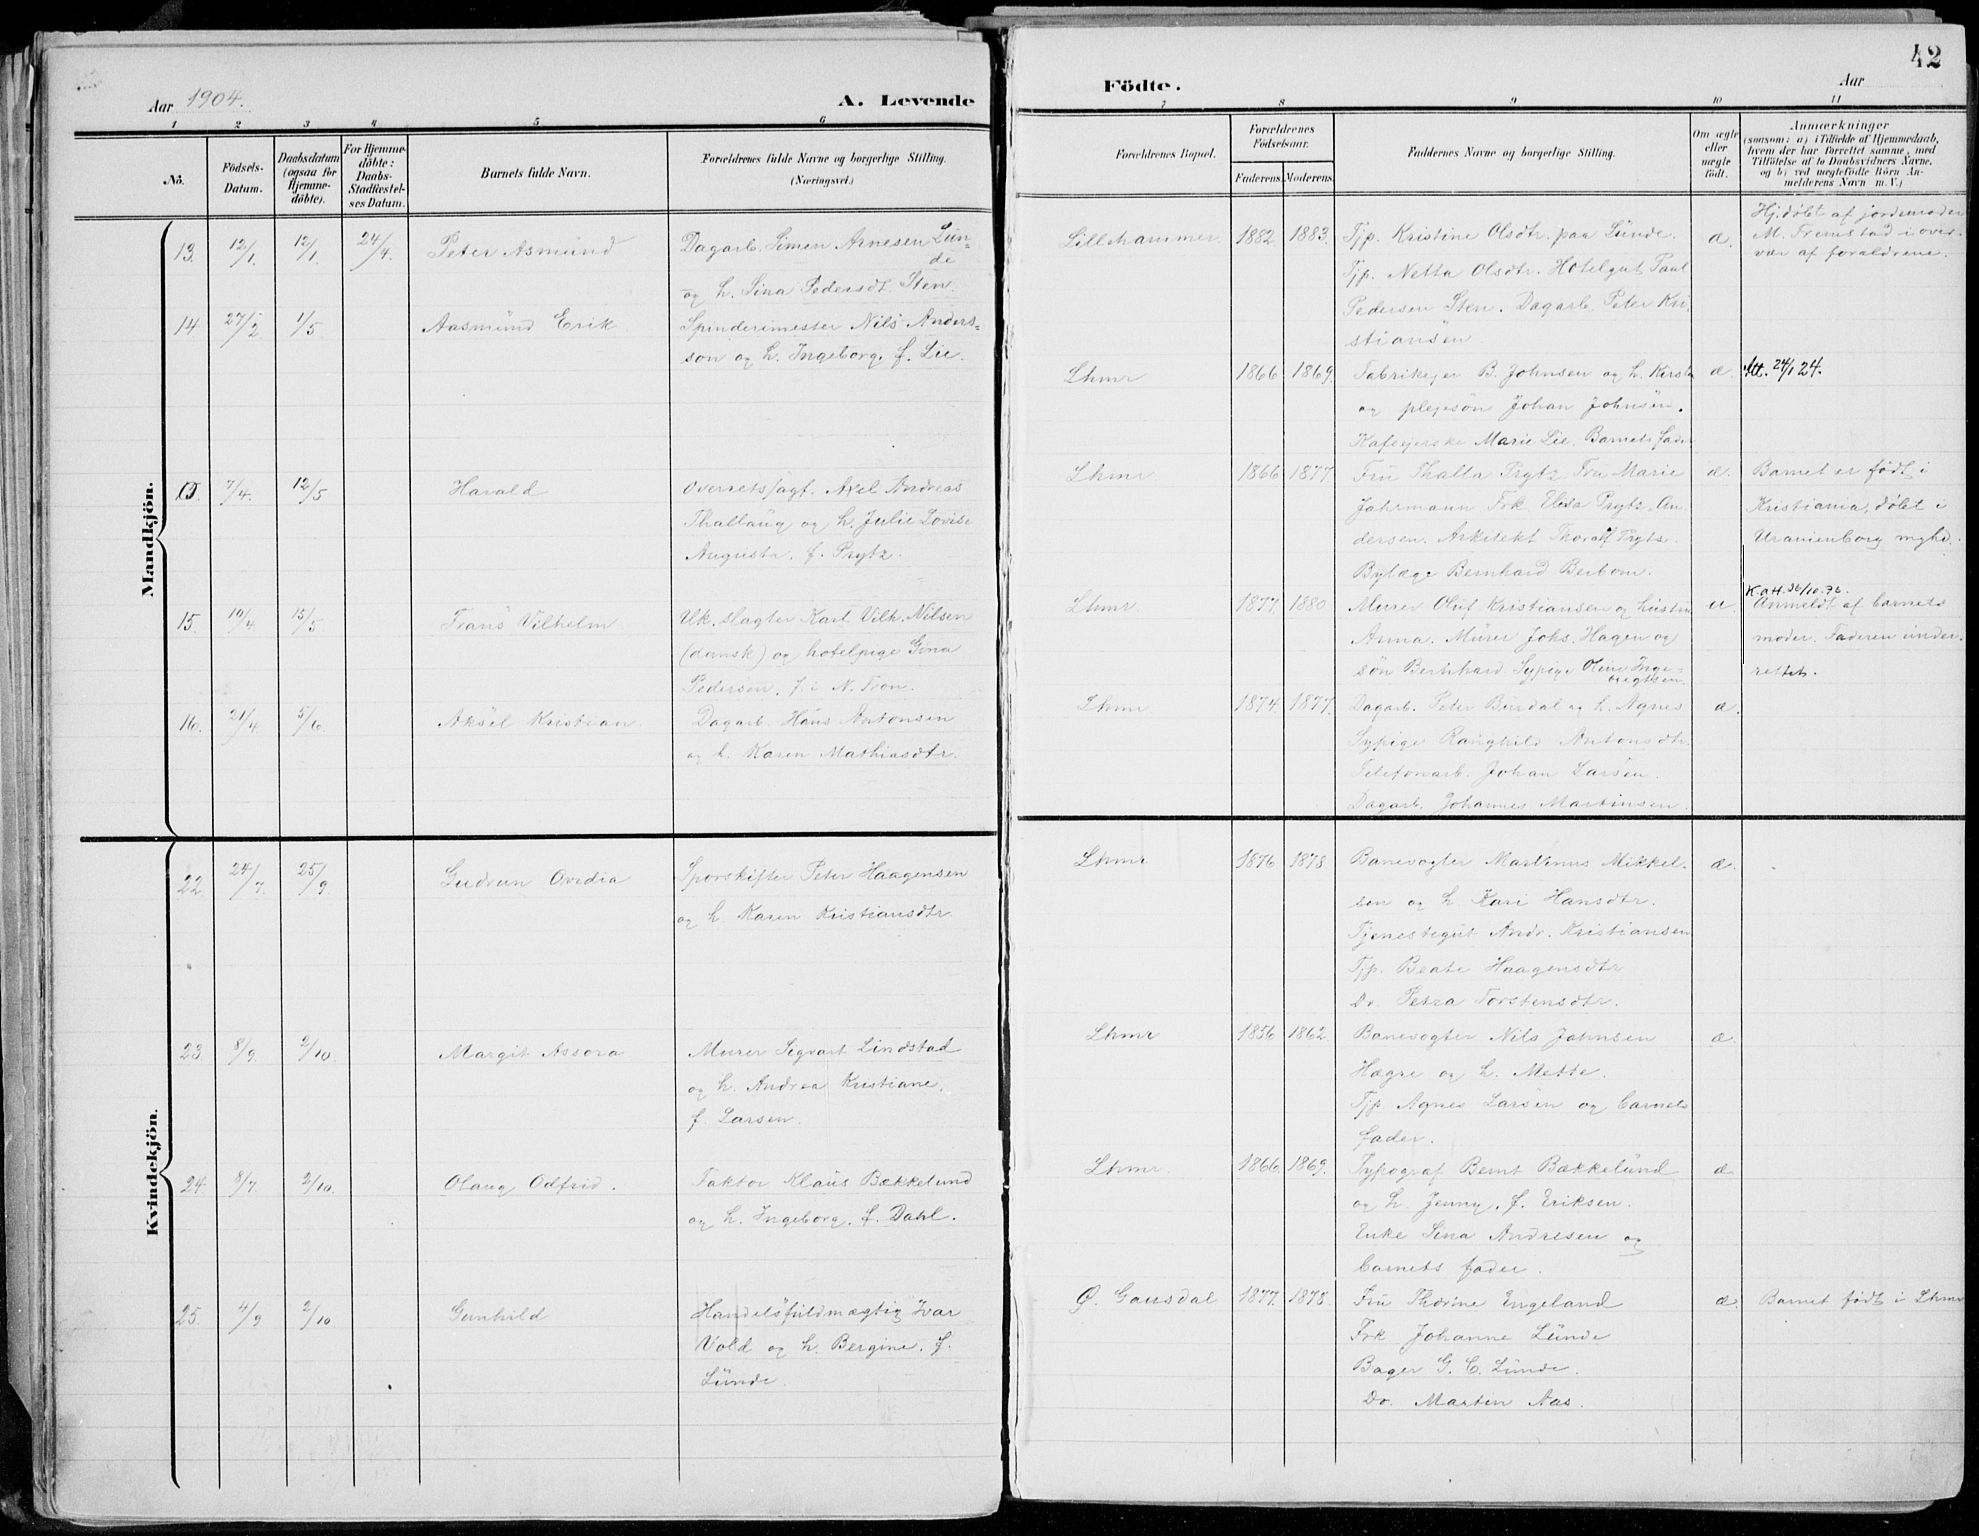 42
Aar 1904.
A. Levende
Födte.
Aar
1 2 3 4 5 6
7 8 9 10 11
No.
Födsels-
Datum.
Daabsdatum
(ogsaa for
Hjemme-
döbte).
For Hjemme-
döbte:
Daabs-
Stadfæstel-
ses Datum.
Barnets fulde Navn.
Forældrenes fulde Navne og borgerlige Stilling.
(Næringsvei.)
Forældrenes Bopæl.
Forældrenes
Födselsaar.
Faderens. Moderens.
Faddernes Navne og borgerlige Stilling.
Om ægte
eller
uægte
födt.
Anmærkninger
(saasom: a) i Tilfælde af Hjemmedaab,
hvem der har forrettet samme, med
Tilföielse af to Daabsvidners Navne,
og b) ved uægtefödte Börn An-
melderens Navn m. V.)
Mandkjön.
13. 12/1. 12/1. 24/4. Peter Asmund
Dagarb. Simen Arnesen Lun-
de
og h. Sina Pedersdt. Sten.
Lillehammer 1882 1883.
Tjp. Kristine Olsdtr. paa Lunde.
Tjp. Netta Olsdtr. Hotelgut Paul
Pedersen Sten. Dagarb. Peter Kri-
stiansen.
æ.
Hj.døbt af jordemoder
M. Fremstad i over-
vær af forældrene.
14 27/2 1/5. Aasmund Erik
Spinderimester Nils Anders-
son og h. Ingeborg, f. Lie.
Lhmr 1866 1869.
Fabrikejer B. Johnsen og h. Kirsti
og plejesøn Johan Johnsen.
Kafeejerske Marie Lie. Barnets fader
æ.
Att. 24/1 24.
7/4. 12/5 Harald
Overretssagf. Axel Andreas
Thallaug og h. Julie Lovise
Augusta, f. Prytz.
Lhmr 1866 1877
Fru Thalla Prytz. Fru Marie
Jahrmann Frk. Elisa Prytz. An-
dersen. Arkitekt Thorolf Prytz.
Bylæge Bernhard Berbom.
æ.
Barnet er født i
Kristiania, døbt i
Uranienborg mghd.
15. 10/4. 15/5. Frans Vilhelm
Uk. slagter Karl Vilh. Nilsen
(dansk) og hotelpige Gina
Pedersen, f. i N. Fron.
Lhmr. 1877. 1880
Murer Oluf Kristiansen og hustru
Anna. Murer Johs. Hagen og
søn Bernhard. Sypige Oline Inge-
brigtsen.
u.
K.att. 30/10.76.
Anmeldt af barnets
moder. Faderen under-
rettet.
16. 21/4. 5/6. Aksel Kristian.
Dagarb. Hans Antonsen
og h. Karen Mathiasdtr.
Lhmr 1874 1877.
Dagarb. Peter Burdal og h. Agnes
Sypige Ranghild Antonsdtr.
Telefonarb. Johan Larsen.
Dagarb. Johannes Martinsen.
æ.
Kvindekjön.
22. 24/7. 25/9. Gudrun Ovidia
Sporskifter Peter Haagensen
og h. Karen Kristiansdtr.
Lhmr 1876 1878
Banevogter Martinus Mikkel-
sen og h. Kari Hansdtr.
Tjenestegut Andr. Kristiansen
Tjp. Beate Haagensdtr
Do. Petra Torstensdtr.
æ.
23. 8/9. 2/10. Margit Assora
Murer Sigvart Lindstad
og h. Andrea Kristiane,
f. Larsen.
Lhmr 1856 1862.
Banevogter Nils Johnsen
Hægre og h. Mette.
Tjp. Agnes Larsen og barnets
fader.
æ.
24. 8/7. 2/10. Olaug Odfrid.
Faktor Klaus Bækkelund
og h. Ingeborg, f. Dahl.
Lhmr. 1866. 1869.
Typograf Bernt Bækkelund
og h. Jenny, f. Eriksen.
Enke Sina Andresen og
barnets fader.
æ
25. 4/9. 2/10. Gunhild
Handelsfuldmægtig Ivar
Vold og h. Bergine, f.
Lunde.
Ø. Gausdal 1877. 1878.
Fru Thorine Engeland
Frk Johanne Lunde
Bager G. C. Lunde.
Do. Martin Aas.
æ.
Barnet født i Lhmr